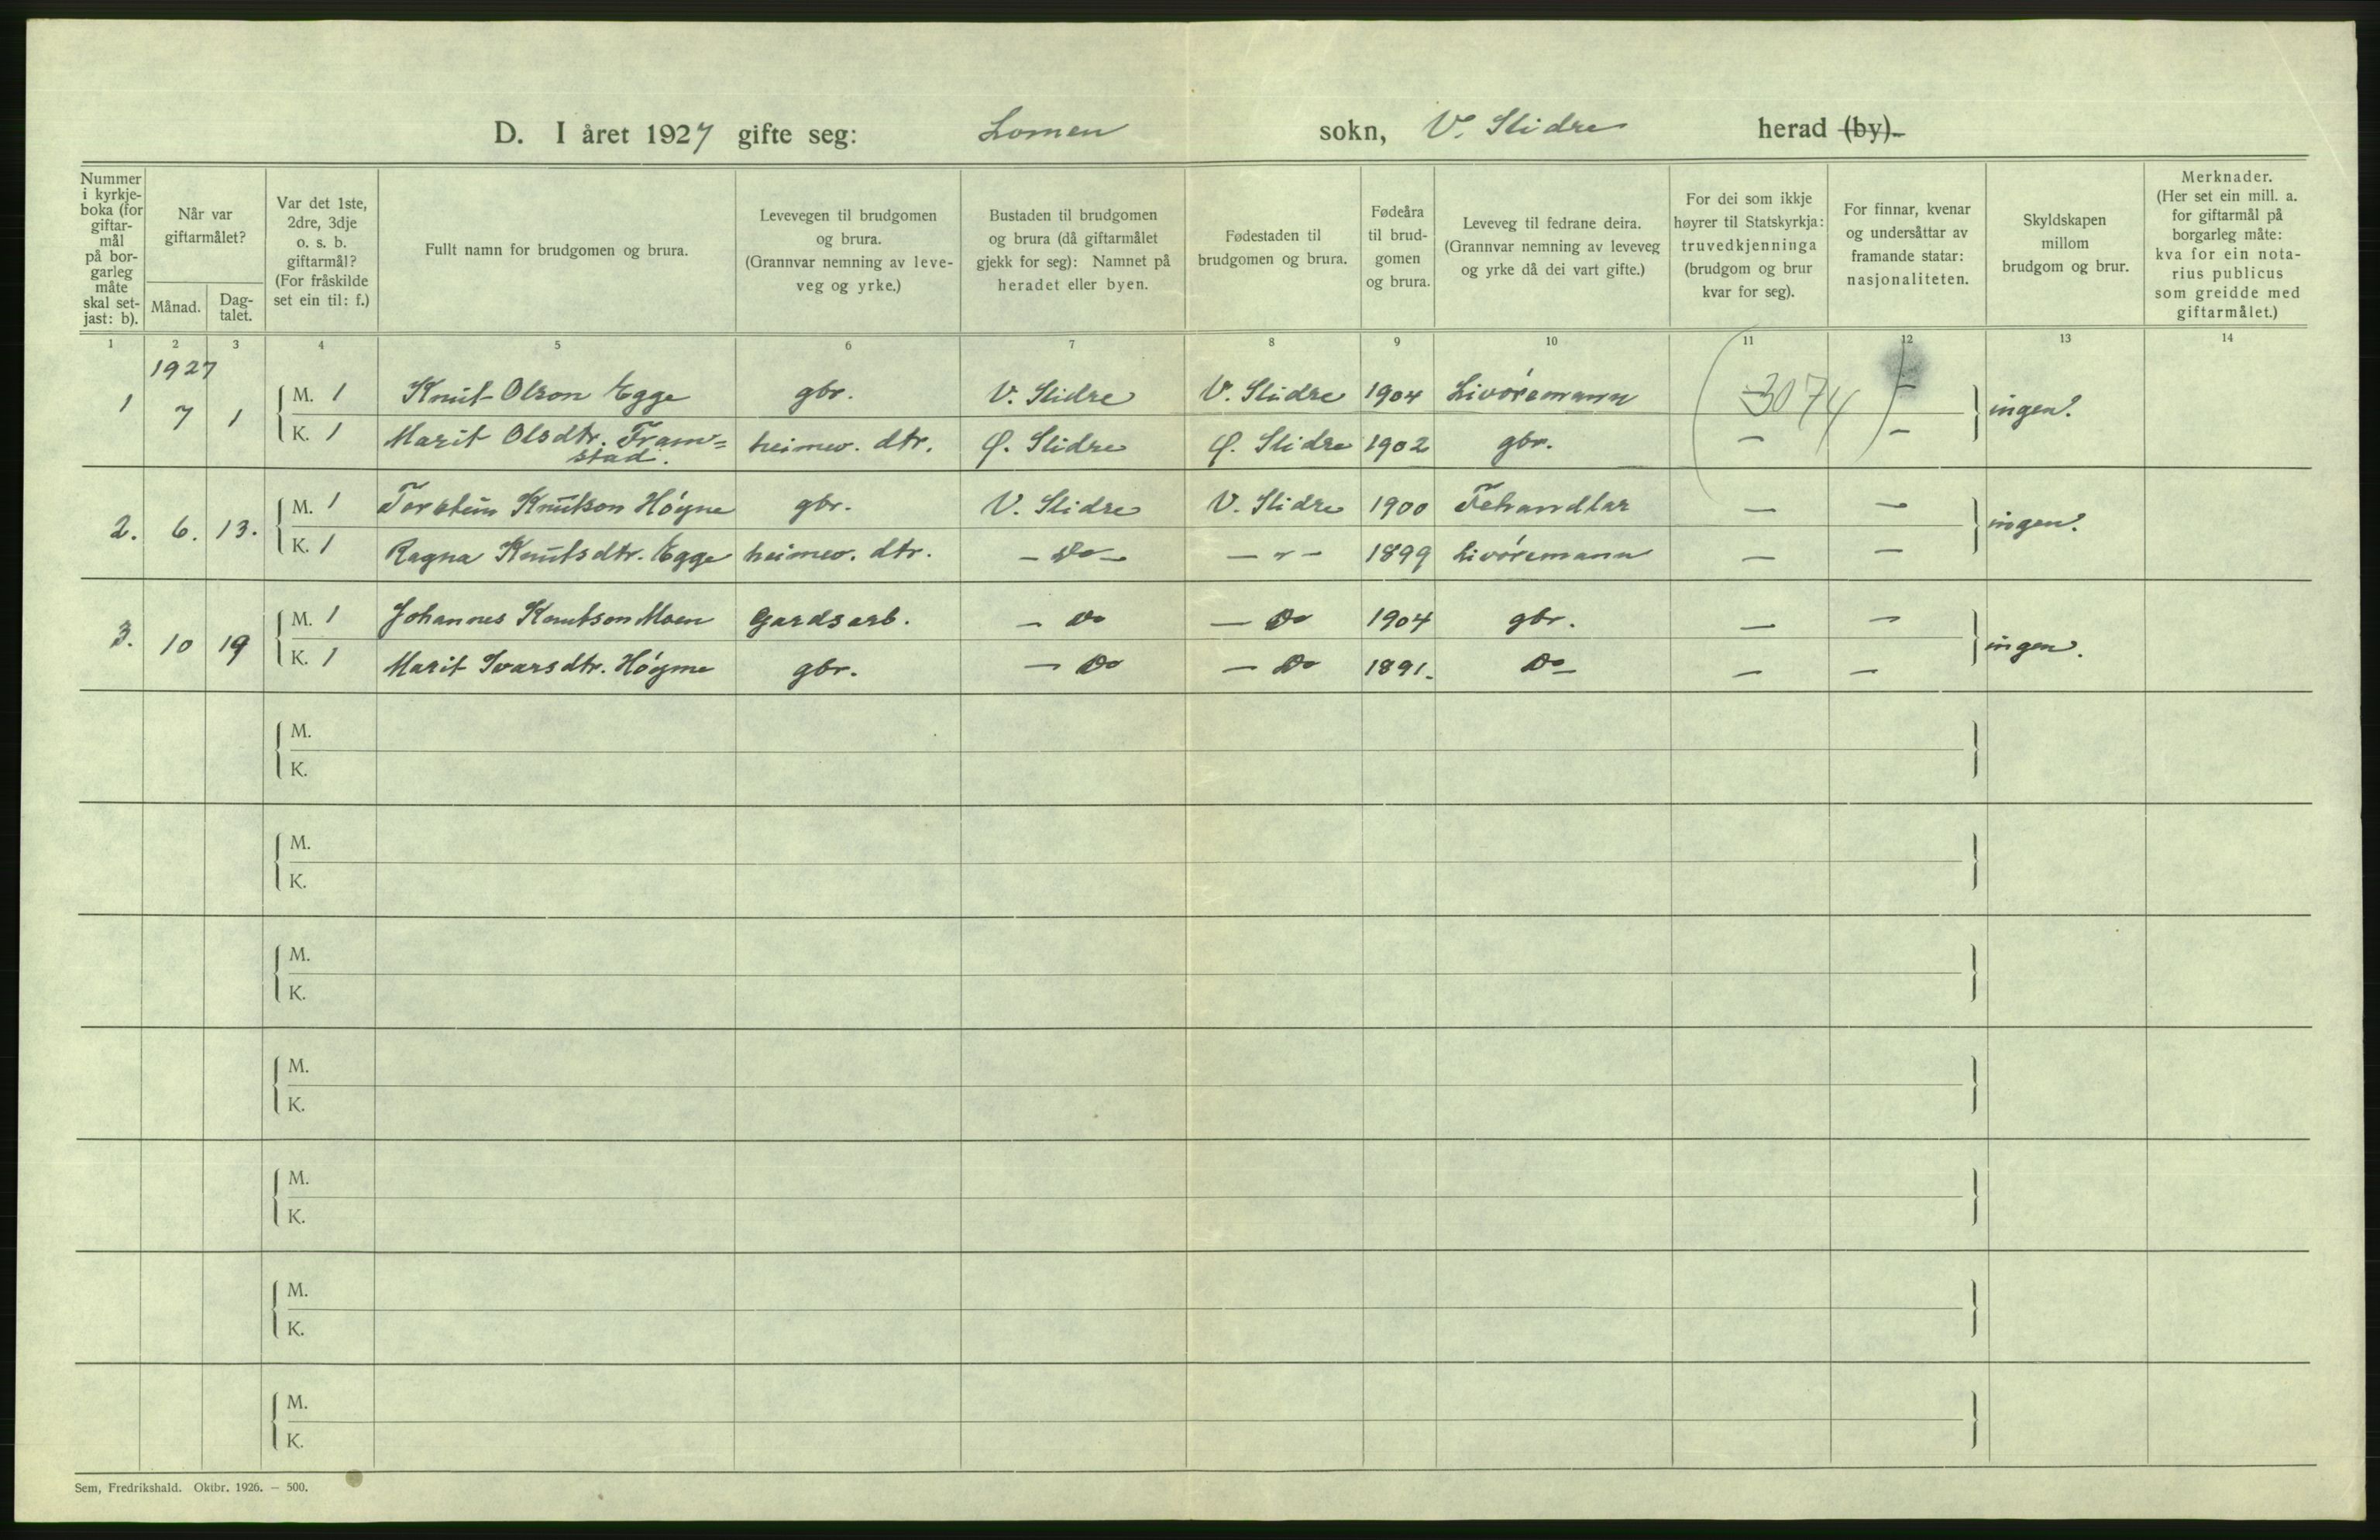 D. I året 1927 gifte seg: Lomen sokn, V. Slidre herad (by).
Nummer i kyrkjeboka (for giftarmål på borgarleg måte skal setjast: b).
Når var giftarmålet?
Månad.
Dagtalet.
Var det 1ste, 2dre, 3dje o. s. b. giftarmål? (For fråskilde set ein til: f.)
Fullt namn for brudgomen og brura.
Levevegen til brudgomen og brura. (Grannvar nemning av leveveg og yrke.)
Bustaden til brudgomen og brura (då giftarmålet gjekk for seg): Namnet på heradet eller byen.
Fødestaden til brudgomen og brura.
Fødeåra til brudgomen og brura.
Leveveg til fedrane deira. (Grannvar nemning av leveveg og yrke då dei vart gifte.)
For dei som ikkje høyrer til Statskyrkja: truvedkjenninga (brudgom og brur kvar for seg).
For finnar, kvenar og undersåttar av framande statar: nasjonaliteten.
Skyldskapen millom brudgom og brur.
Merknader. (Her set ein mill. a. for giftarmål på borgarleg måte: kva for ein notarius publicus som greidde med giftarmålet.)
1 2 3 4 5 6 7 8 9 10 11 12 13 14
1927
1 7 1 M. 1 Knut Olson Egge gbr. V. Slidre V. Slidre 1904 Livøremann (3074) — ingen.
K. 1 Marit Olsdtr. Fram=
stad. heimev. dtr. Ø. Slidre Ø. Slidre 1902 gbr. — —
2. 6. 13. M. 1 Torstein Knutson Høyne gbr. V. Slidre V. Slidre 1900 Fehandlar — — ingen.
K. 1 Ragna Knutsdtr. Egge heimev. dtr. — Do — — " — 1899 Livøremann — —
3. 10 19 M. 1 Johannes Knutson Moen Gardsarb. — Do — Do 1904 gbr. — — ingen.
K. 1 Marit Ivarsdtr. Høyne gbr. — Do — Do 1891. Do — — —
M.
K.
M.
K.
M.
K.
M.
K.
M.
K.
M.
K.
M.
K.
Sem, Fredrikshald. Oktbr. 1926. — 500.